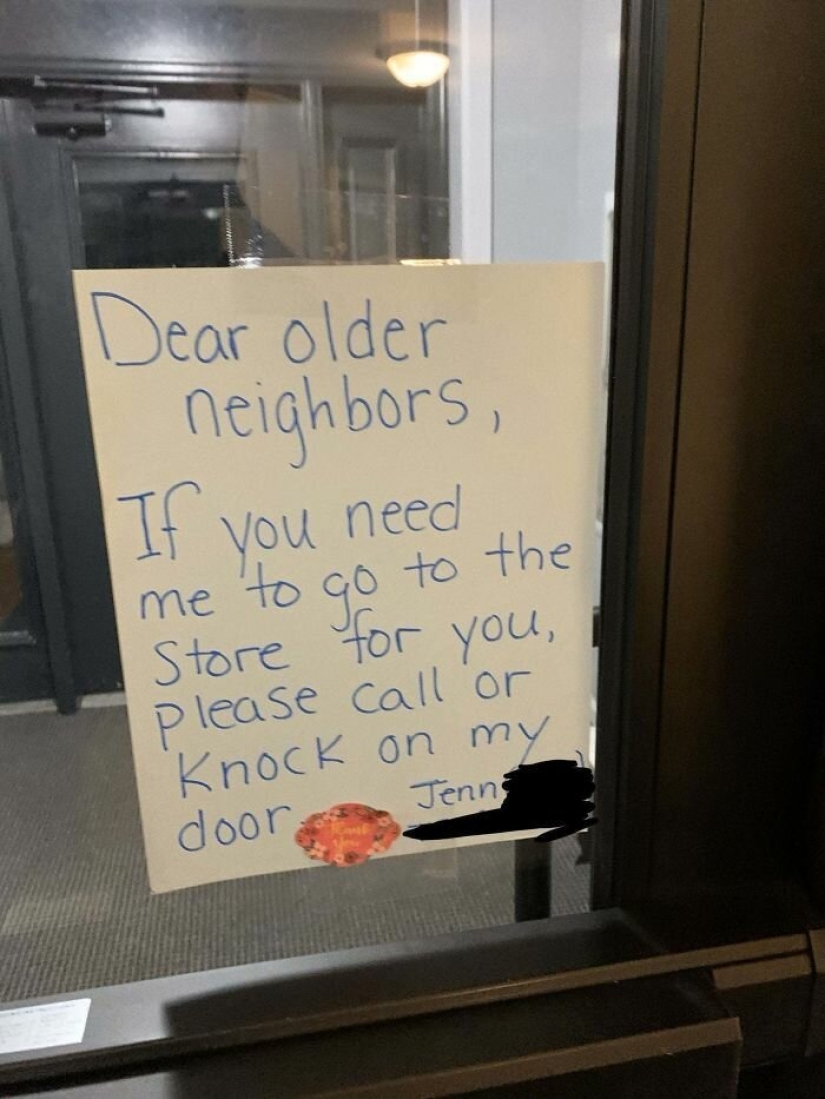 Dear older
neighbors,
If you need
me to go to the
Store for you,
please call or
Knock on my
door
Jenn
Thank
You